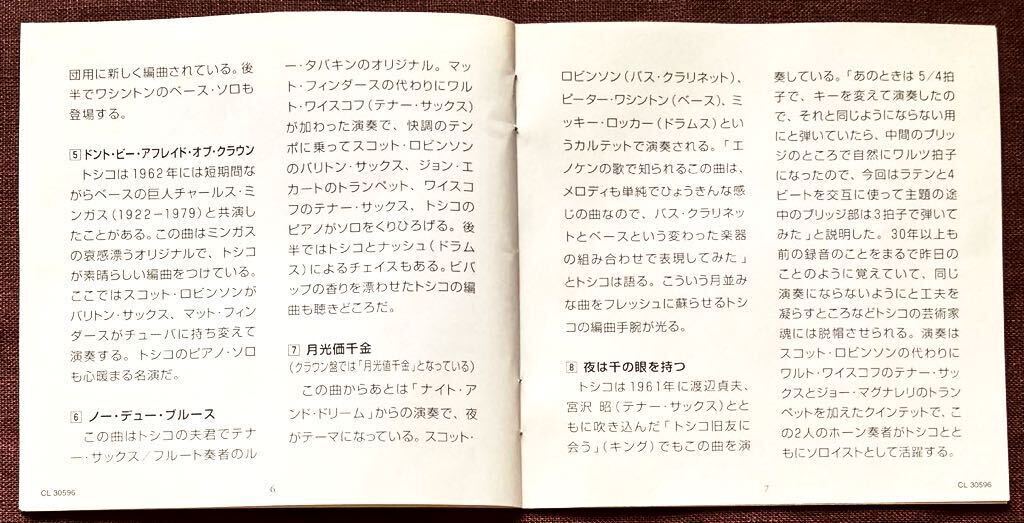 団用に新しく編曲されている。後
半でワシントンのベース・ソロも
登場する。
5 ドント・ビー・アフレイド・オブ・クラウン
トシコは1962年には短期間な
がらベースの巨人チャールス・ミ
ンガス(1922−1979)と共演し
たことがある。この曲はミンガス
の哀感漂うオリジナルで、トシコ
が素晴らしい編曲をつけている。
ここではスコット・ロビンソンが
バリトン・サックス、マット・フィン
ダースがチューバに持ち変えて
演奏する。トシコのピアノ・ソロ
も心暖まる名演だ。
6 ノー・デュー・ブルース
この曲はトシコの夫君でテナ
ー・サックス/フルート奏者のル
CL 30596
6
ー・タバキンのオリジナル。マッ
ト・フィンダースの代わりにワル
ト・ワイスコフ(テナー・サックス)
が加わった演奏で、快調のテン
ポに乗ってスコット・ロビンソン
のバリトン・サックス、ジョン・エ
カートのトランペット、ワイスコ
フのテナー・サックス、トシコの
ピアノがソロをくりひろげる。後
半ではトシコとナッシュ(ドラム
ス)によるチェイスもある。ビバ
ップの香りを漂わせたトシコの編
曲も聴きどころだ。
7 月光価千金
(クラウン盤では「月光値千金」となっている)
この曲からあとは「ナイト・ア
ンド・ドリーム」からの演奏で、夜
がテーマになっている。スコット・
ロビンソン(バス・クラリネット)、
ピーター・ワシントン(ベース)、ミ
ッキー・ロッカー(ドラムス)とい
うカルテットで演奏される。「エ
ノケンの歌で知られるこの曲は、
メロディも単純でひょうきんな感
じの曲なので、バス・クラリネッ
トとベースという変わった楽器
の組み合わせで表現してみた」
とトシコは語る。こういう月並み
な曲をフレッシュに蘇らせるトシ
コの編曲手腕が光る。
8 夜は千の眼を持つ
トシコは1961年に渡辺貞夫、
宮沢 昭(テナー・サックス)とと
もに吹き込んだ「トシコ旧友に
会う」(キング)でもこの曲を演
7
奏している。「あのときは 5/4拍
子で、キーを変えて演奏したの
で、それと同じようにならない用
にと弾いていたら、中間のブリッ
ジのところで自然にワルツ拍子
になったので、今回はラテンと4
ビートを交互に使って主題の途
中のブリッジ部は3拍子で弾いて
みた」と説明した。30年以上も
前の録音のことをまるで昨日の
ことのように覚えていて、同じ
演奏にならないようにと工夫を
凝らすところなどトシコの芸術家
魂には脱帽させられる。演奏は
スコット・ロビンソンの代わりに
ワルト・ワイスコフのテナー・サッ
クスとジョー・マグナレリのトラン
ペットを加えたクインテットで、こ
の2人のホーン奏者がトシコとと
もにソロイストとして活躍する。
CL 30596